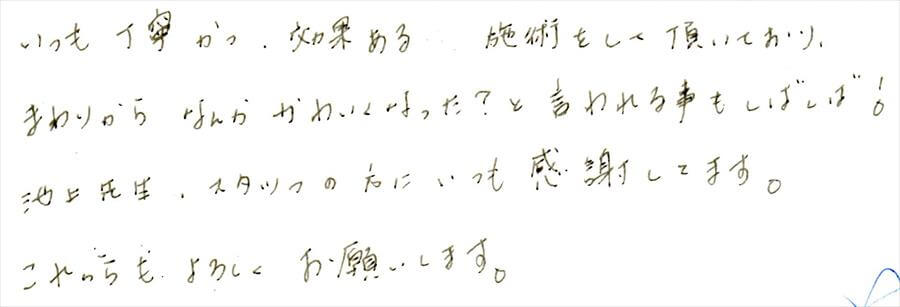 いつも丁寧かつ、効果ある 施術をして頂いており、
まわりから なんか かわいくなった？と言われる事もしばしば！
池上先生、スタッフの方にいつも感謝してます。
これからも よろしく お願いします。